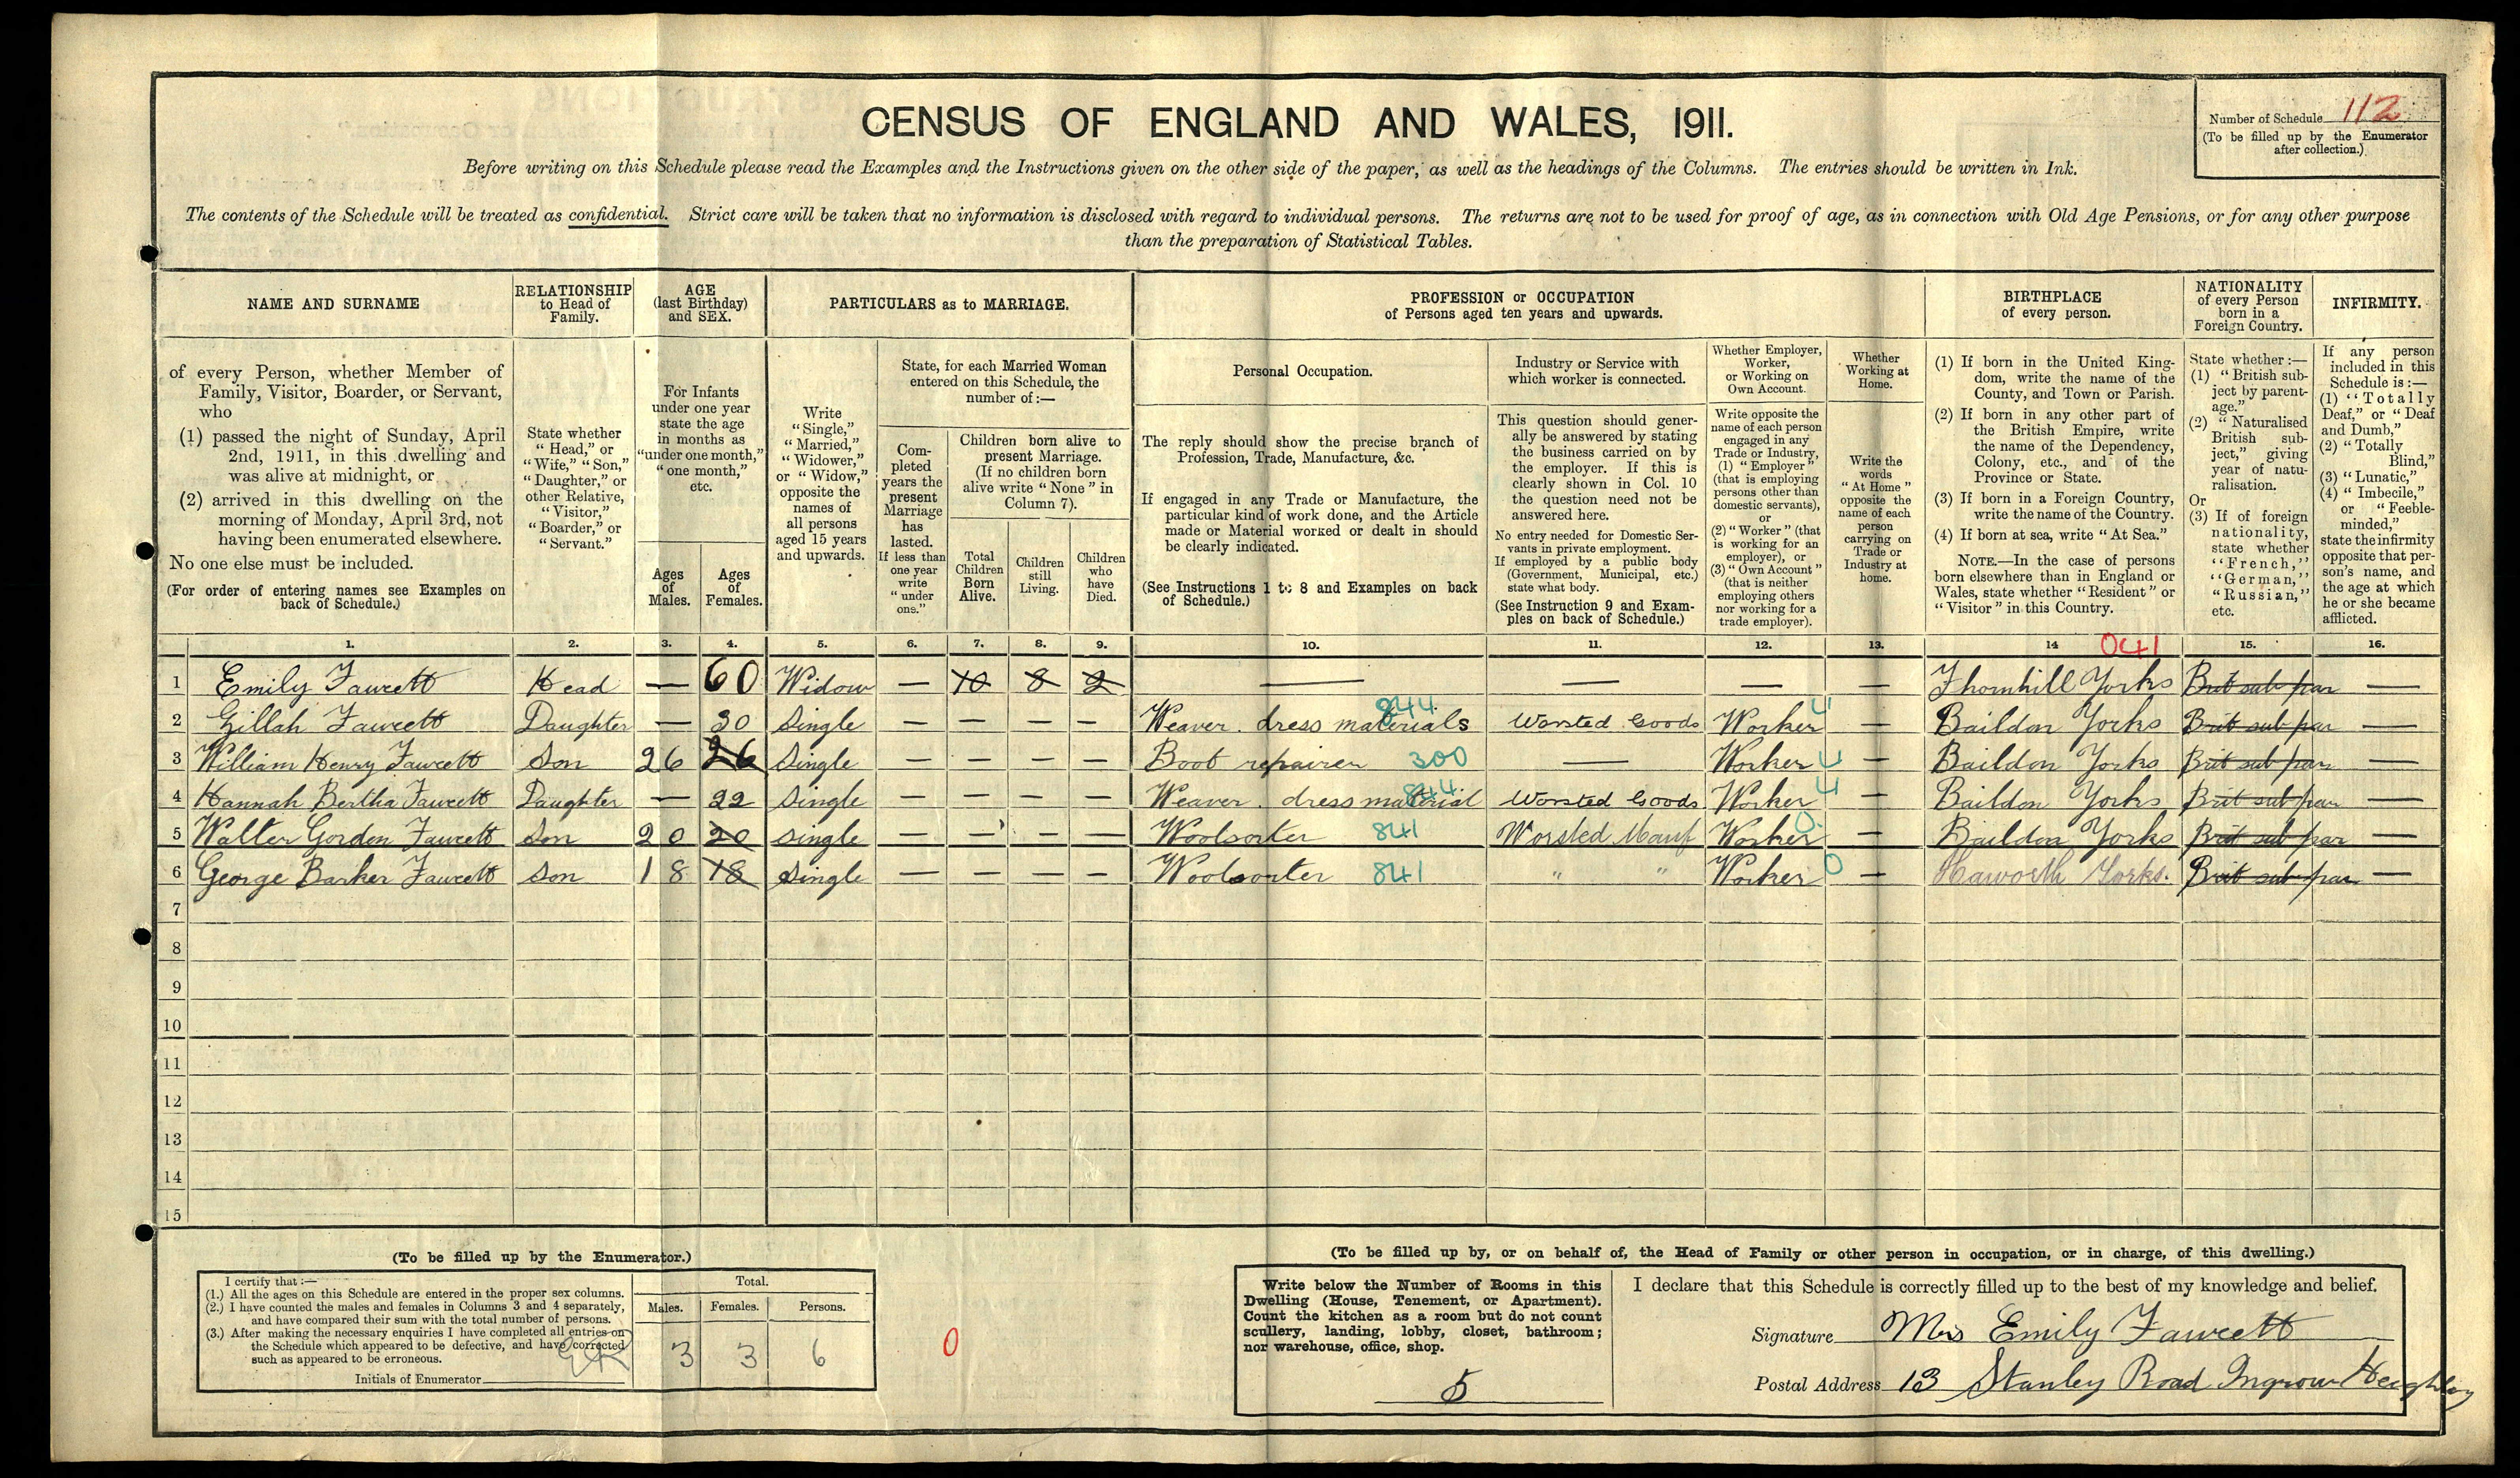 CENSUS OF ENGLAND AND WALES, 1911.
Number of Schedule 112
(To be filled up by the Enumerator
after collection.)
Before writing on this Schedule please read the Examples and the Instructions given on the other side of the paper, as well as the headings of the Columns. The entries should be written in Ink.
The contents of the Schedule will be treated as confidential. Strict care will be taken that no information is disclosed with regard to individual persons. The returns are not to be used for proof of age, as in connection with Old Age Pensions, or for any other purpose
than the preparation of Statistical Tables.
NAME AND SURNAME
of every Person, whether Member of
Family, Visitor, Boarder, or Servant,
who
(1) passed the night of Sunday, April
2nd, 1911, in this dwelling and
was alive at midnight, or
(2) arrived in this dwelling on the
morning of Monday, April 3rd, not
having been enumerated elsewhere.
No one else must be included.
(For order of entering names see Examples on
back of Schedule.)
RELATIONSHIP
to Head of
Family.
State whether
"Head," or
"Wife," "Son,"
"Daughter," or
other Relative,
"Visitor,"
"Boarder," or
"Servant."
AGE
(last Birthday)
and SEX.
For Infants
under one year
state the age
in months as
"under one month,"
"one month,"
etc.
Ages
of
Males.
Ages
of
Females.
PARTICULARS as to MARRIAGE.
Write
"Single,"
"Married,"
"Widower,"
or "Widow,"
opposite the
names of
all persons
aged 15 years
and upwards.
State, for each Married Woman
entered on this Schedule, the
number of :—
Com-
pleted
years the
present
Marriage
has
lasted.
If less than
one year
write
"under
one."
Children born alive to
present Marriage.
(If no children born
alive write "None" in
Column 7).
Total
Children
Born
Alive.
Children
still
Living.
Children
who
have
Died.
PROFESSION or OCCUPATION
of Persons aged ten years and upwards.
Personal Occupation.
The reply should show the precise branch of
Profession, Trade, Manufacture, &c.
If engaged in any Trade or Manufacture, the
particular kind of work done, and the Article
made or Material worked or dealt in should
be clearly indicated.
(See Instructions 1 to 8 and Examples on back
of Schedule.)
Industry or Service with
which worker is connected.
This question should gener-
ally be answered by stating
the business carried on by
the employer. If this is
clearly shown in Col. 10
the question need not be
answered here.
No entry needed for Domestic Ser-
vants in private employment.
If employed by a public body
(Government, Municipal, etc.)
state what body.
(See Instruction 9 and Exam-
ples on back of Schedule.)
Whether Employer,
Worker,
or Working on
Own Account.
Write opposite the
name of each person
engaged in any
Trade or Industry,
(1) "Employer"
(that is employing
persons other than
domestic servants),
or
(2) "Worker" (that
is working for an
employer), or
(3) "Own Account"
(that is neither
employing others
nor working for a
trade employer).
Whether
Working at
Home.
Write the
words
"At Home"
opposite the
name of each
person
carrying on
Trade or
Industry at
home.
BIRTHPLACE
of every person.
(1) If born in the United King-
dom, write the name of the
County, and Town or Parish.
(2) If born in any other part of
the British Empire, write
the name of the Dependency,
Colony, etc., and of the
Province or State.
(3) If born in a Foreign Country,
write the name of the Country.
(4) If born at sea, write "At Sea."
NOTE.—In the case of persons
born elsewhere than in England or
Wales, state whether "Resident" or
"Visitor" in this Country.
NATIONALITY
of every Person
born in a
Foreign Country.
State whether :—
(1) "British sub-
ject by parent-
age."
(2) "Naturalised
British sub-
ject," giving
year of natu-
ralisation.
Or
(3) If of foreign
nationality,
state whether
"French,"
"German,"
"Russian,"
etc.
INFIRMITY.
If any person
included in this
Schedule is :—
(1) "Totally
Deaf," or "Deaf
and Dumb,"
(2) "Totally
Blind,"
(3) "Lunatic,"
(4) "Imbecile,"
or "Feeble-
minded,"
state the infirmity
opposite that per-
son's name, and
the age at which
he or she became
afflicted.
1. 2. 3. 4. 5. 6. 7. 8. 9. 10. 11. 12. 13. 14 041 15. 16.
1 Emily Fawcett Head — 60 Widow — 10 8 2 — — — — Thornhill Yorks Brit sub par —
2 Zillah Fawcett Daughter — 30 Single — — — — Weaver. dress materials 844 Worsted Goods Worker 4 — Baildon Yorks Brit sub par —
3 William Henry Fawcett Son 26 26 Single — — — — Boot repairer 300 — Worker 4 — Baildon Yorks Brit sub par —
4 Hannah Bertha Fawcett Daughter — 22 Single — — — — Weaver. dress material 844 Worsted Goods Worker 4 — Baildon Yorks Brit sub par —
5 Walter Gordon Fawcett Son 20 20 single — — — — Woolsorter 841 Worsted Manf Worker 0 — Baildon Yorks Brit sub par —
6 George Barker Fawcett Son 18 18 Single — — — — Woolsorter 841 " " Worker 0 — Haworth Yorks. Brit sub par —
7
8
9
10
11
12
13
14
15
(To be filled up by the Enumerator.)
I certify that :—
(1.) All the ages on this Schedule are entered in the proper sex columns.
(2.) I have counted the males and females in Columns 3 and 4 separately,
and have compared their sum with the total number of persons.
(3.) After making the necessary enquiries I have completed all entries on
the Schedule which appeared to be defective, and have corrected
such as appeared to be erroneous.
Initials of Enumerator
Total.
Males. Females. Persons.
3 3 6
0
(To be filled up by, or on behalf of, the Head of Family or other person in occupation, or in charge, of this dwelling.)
Write below the Number of Rooms in this
Dwelling (House, Tenement, or Apartment).
Count the kitchen as a room but do not count
scullery, landing, lobby, closet, bathroom;
nor warehouse, office, shop.
5
I declare that this Schedule is correctly filled up to the best of my knowledge and belief.
Signature Mrs Emily Fawcett
Postal Address 13 Stanley Road Ingrow Keighley